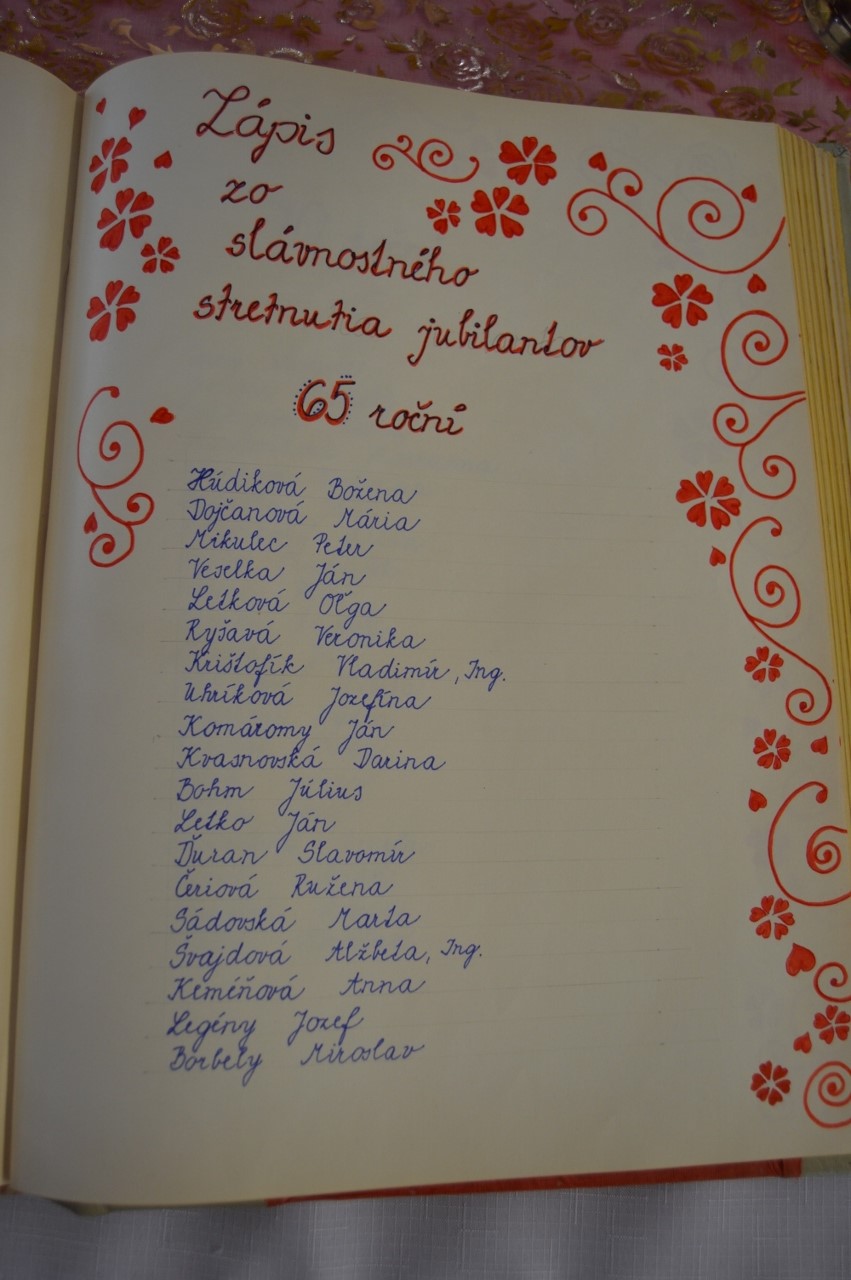 Zápis
zo
slávnostného
stretnutia jubilantov
65 roční
Húdiková Božena
Dojčanová Mária
Mikulec Peter
Veselka Ján
Letková Oľga
Ryšavá Veronika
Krištofík Vladimír, Ing.
Uhríková Jozefína
Komáromy Ján
Kvasnovská Darina
Bohm Július
Letko Ján
Ďuran Slavomír
Čeriová Ružena
Sádovská Marta
Švajdová Alžbeta, Ing.
Keméňová Anna
Legény Jozef
Borbely Miroslav